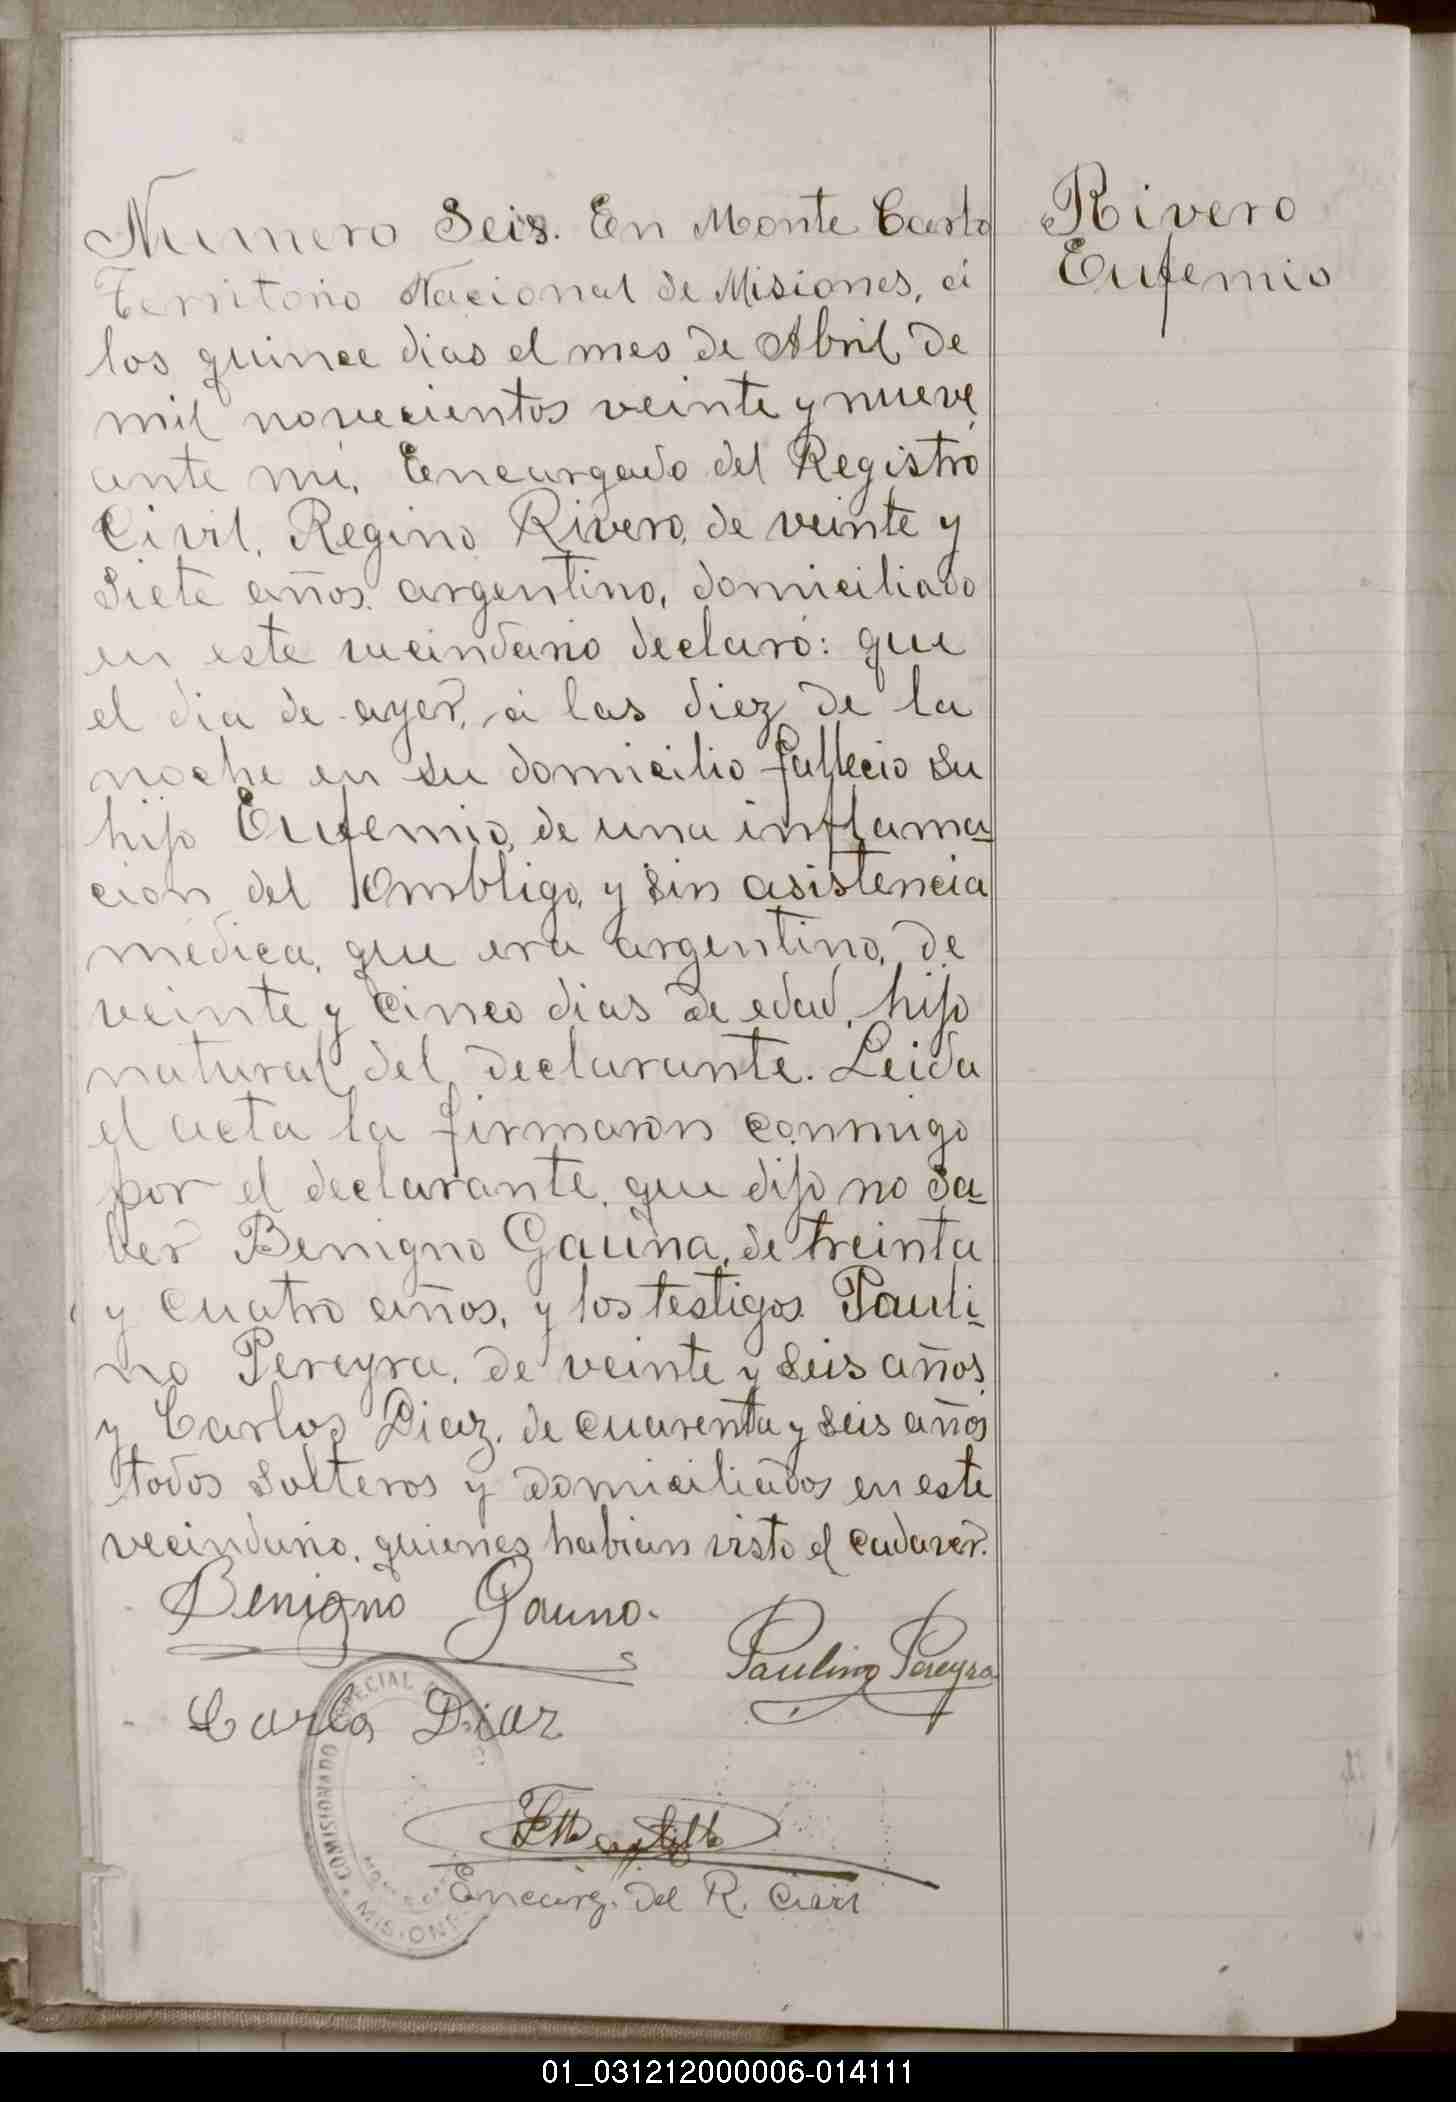 Rivero
Eufemio
Numero Seis. En Monte Carlo
Territorio Nacional de Misiones, á
los quince dias el mes de Abril de
mil novecientos veinte y nueve,
ante mi, Encargado del Registro
Civil, Regino Rivero, de veinte y
siete años argentino, domiciliado
en este vecindario declaró: que
el dia de ayer, á las diez de la
noche en su domicilio fallecio su
hijo Eufemio, de una inflama-
cion del Ombligo, y sin asistencia
médica, que era argentino, de
veinte y cinco dias de edad, hijo
natural del declarante. Leida
el acta la firmaron conmigo
por el declarante, que dijo no sa-
ber Benigno Gauna, de treinta
y cuatro años, y los testigos Pauli-
no Pereyra, de veinte y seis años,
y Carlos Diaz, de cuarenta y seis años
todos solteros y domiciliados en este
vecindario, quienes habian visto el cadaver.
Benigno Gauna.
Paulino Pereyra
Carlos Diaz
Encarg. del R. Civil
COMISIONADO ESPECIAL
MISIONES
01_031212000006-014111